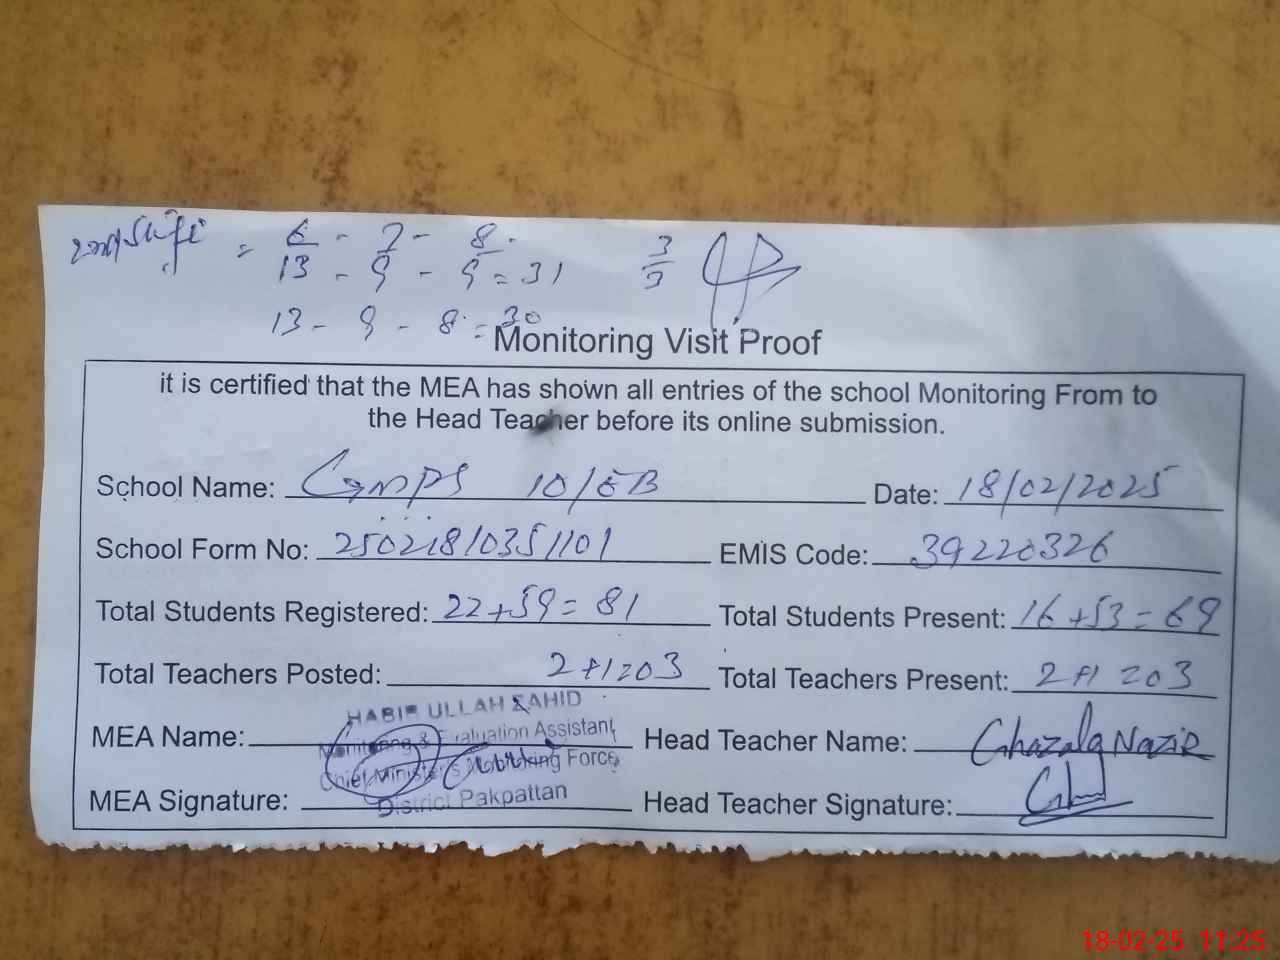 6 - 7 - 8
13 - 9 - 9 = 31
3/3
13 - 9 - 8 = 30
Monitoring Visit Proof
it is certified that the MEA has shown all entries of the school Monitoring From to
the Head Teacher before its online submission.
School Name: GMPS 10/EB Date: 18/02/2025
School Form No: 25021810351101 EMIS Code: 39220326
Total Students Registered: 22+59=81 Total Students Present: 16+53=69
Total Teachers Posted: 2+1=03 Total Teachers Present: 2+1=03
HABIB ULLAH ZAHID
MEA Name: Monitoring & Evaluation Assistant Head Teacher Name: Ghazala Nazir
Chief Minister's Monitoring Force
MEA Signature: District Pakpattan Head Teacher Signature:
18-02-25 11:25